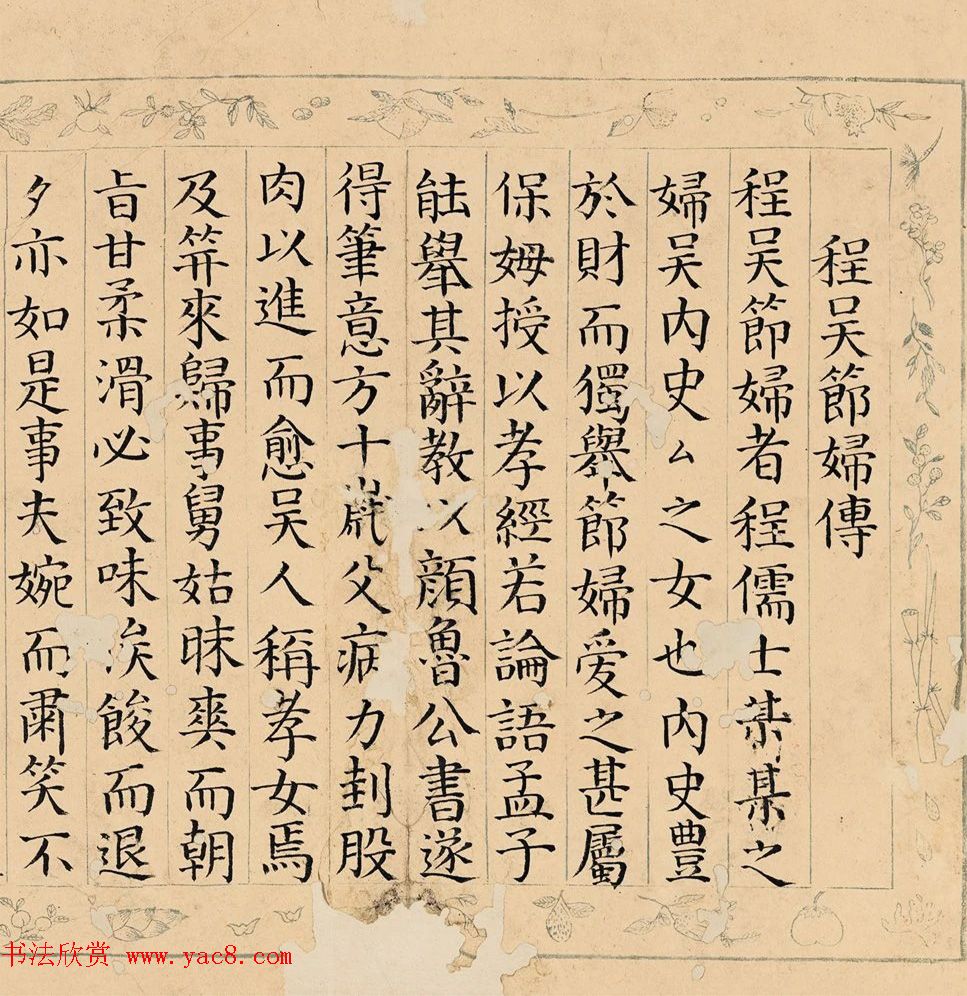 程吴節婦傳
程吴節婦者程儒士某某之
婦吴内史厶之女也内史豊
於財而獨舉節婦爱之甚屬
保姆授以孝經若論語孟子
能舉其辭教以顔魯公書遂
得筆意方十歲父病力刲股
肉以進而愈吴人稱孝女焉
及笄來歸事舅姑昧爽而朝
旨甘柔滑必致味俟餕而退
夕亦如是事夫婉而肅笑不
书法欣赏 www.yac8.com